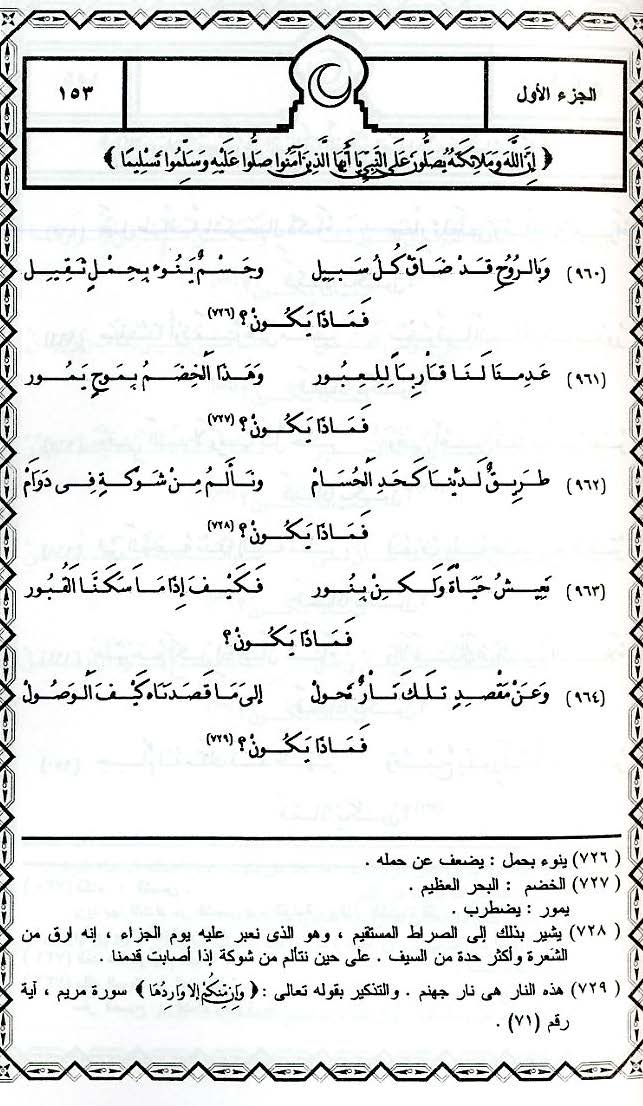 الجزء الأول
١٥٣
﴿ إِنَّ اللَّهَ وَمَلَائِكَتَهُ يُصَلُّونَ عَلَى النَّبِيِّ يَا أَيُّهَا الَّذِينَ آمَنُوا صَلُّوا عَلَيْهِ وَسَلِّمُوا تَسْلِيمًا ﴾
(٩٦٠) وَبِالرُّوحِ قَدْ ضَاقَ كُلُّ سَبِيلِ وجِسْمٌ يَنُوءُ بِحِمْلٍ ثَقِيلِ
فَمَاذَا يَكُونْ؟ (٧٢٦)
(٩٦١) عَدِمْنَا لَنَا قَارِبَاً لِلعِبُور وَهَذَا الْخِضَمُّ بِمَوجٍ يَمُور
فَمَاذَا يَكُونْ؟ (٧٢٧)
(٩٦٢) طَرِيقٌ لَدَيْنَا كَحَدِّ الْحُسَامْ ونَألَمُ مِنْ شَوْكَةٍ فِى دَوَامْ
فَمَاذَا يَكُونْ؟ (٧٢٨)
(٩٦٣) نَعِيشُ حَيَاةً وَلَكِنْ بِنُور فَكَيْفَ إِذَا مَا سَكَنَّا الْقُبُور
فَمَاذَا يَكُونْ؟
(٩٦٤) وَعَنْ مَقْصِدٍ تِلْكَ نَارٌ تَحُولْ إِلى مَا قَصَدْنَاه كَيْفَ الْوصُولْ
فَمَاذَا يَكُونْ؟ (٧٢٩)
(٧٢٦) ينوء بحمل : يضعف عن حمله .
(٧٢٧) الخضم : البحر العظيم .
يمور : يضطرب .
(٧٢٨) يشير بذلك إلى الصراط المستقيم ، وهو الذى نعبر عليه يوم الجزاء ، إنه ارق من
الشعرة وأكثر حدة من السيف . على حين نتألم من شوكة إذا أصابت قدمنا .
(٧٢٩) هذه النار هى نار جهنم . والتذكير بقوله تعالى : ﴿ وَإِن مِّنكُمْ إِلَّا وَارِدُهَا ﴾ سورة مريم ، آية
رقم (٧١) .